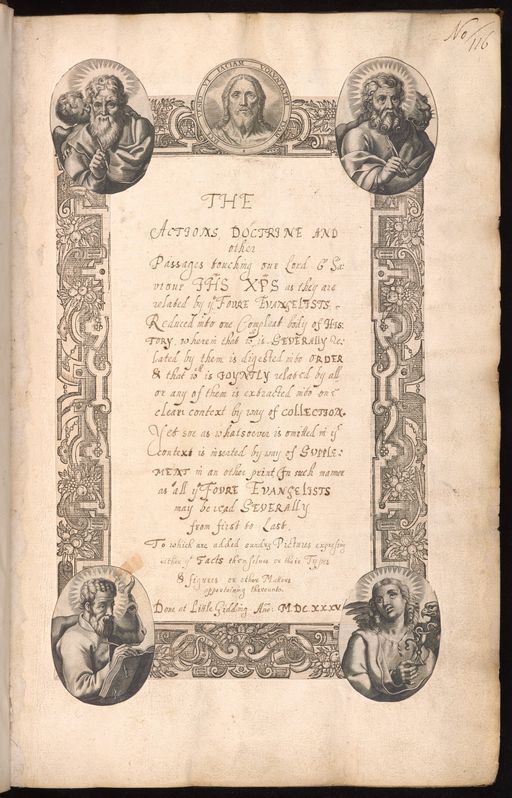 No 116
FACIAM VOLUNTATEM
THE
ACTIONS DOCTRINE AND
other
Passages touching our Lord & Sa:
viour IHS XPS as they are
related by ye FOURE EVANGELISTS
Reduced into one Compleat body of HIS:
TORY, wherein that wch is SEVERALLY Re:
lated by them is digested into ORDER
& that wch is JOYNTLY related by all
or any of them is extracted into one
cleare context by way of COLLECTION
Yet soe as whatsoever is omitted in ye
Context is inserted by way of SUPPLE:
MENT in an other print In such maner
as all ye FOURE EVANGELISTS
may be read SEVERALLY
from first to Last.
To which are added sundry Pictures expressing
either ye Facts themselves or their Types
& figures or other Matters
appertaining thereunto.
Done at Little Gidding Ano: M.DC.XXXV